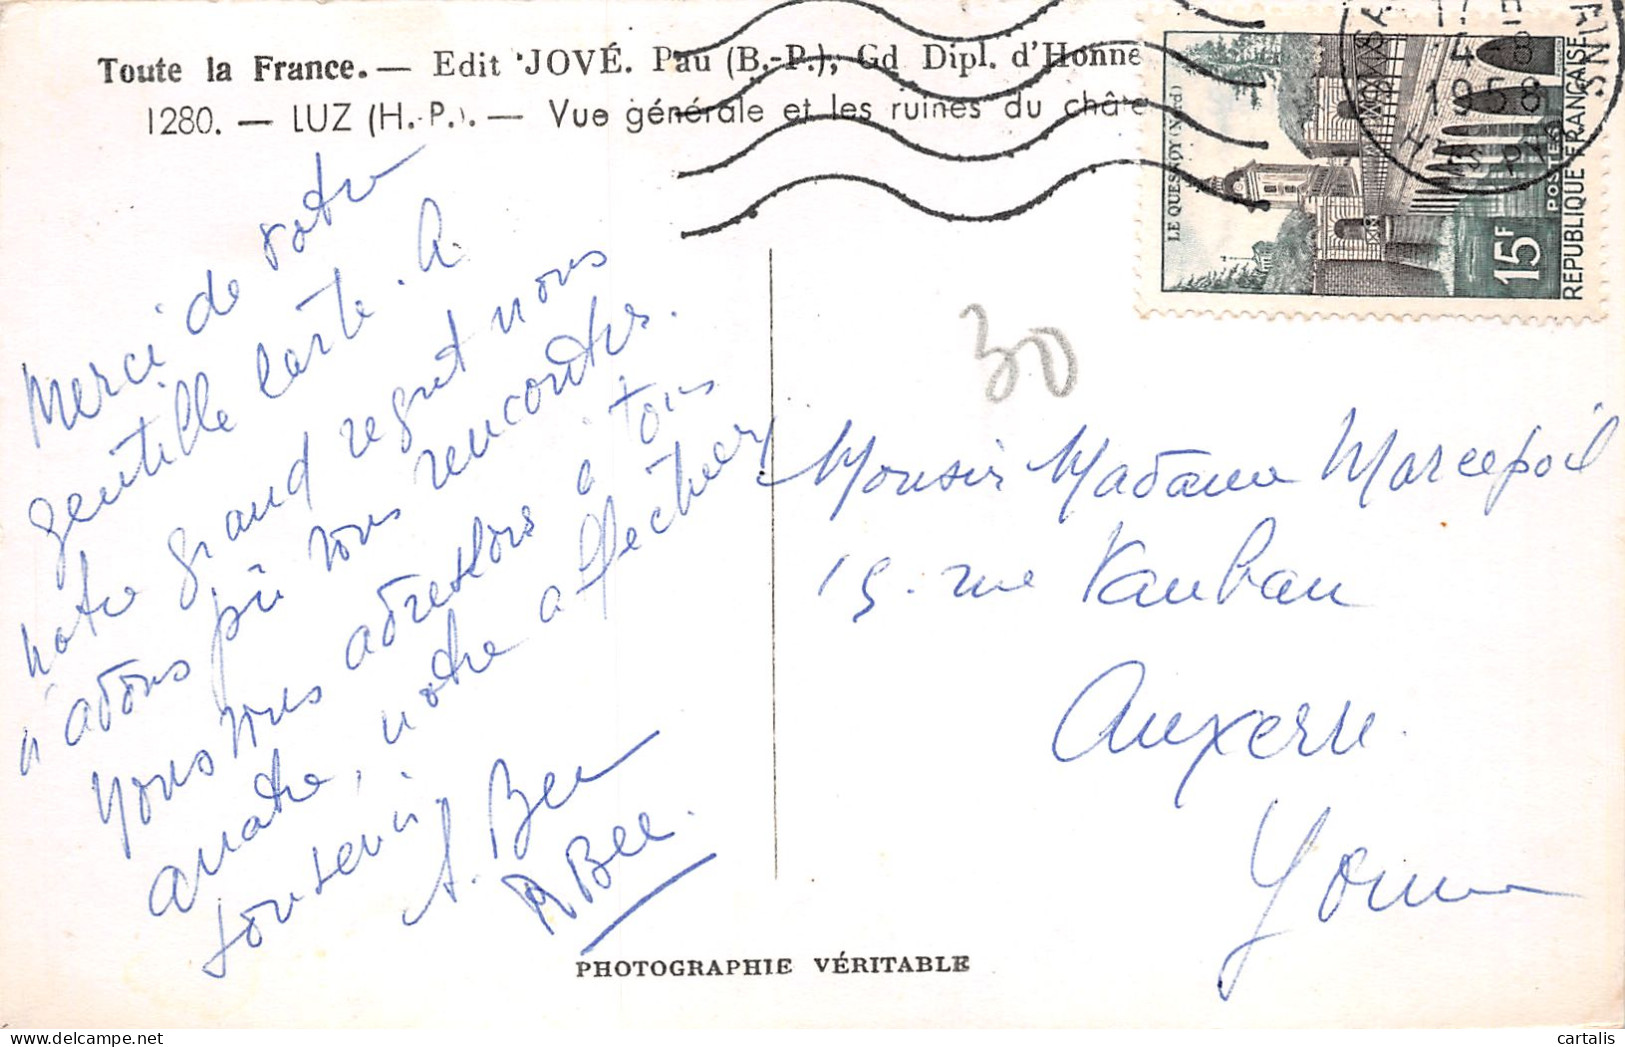 Toute la France. — Edit JOVÉ. Pau (B.-P.), Gd Dipl. d'Honne
1280. — LUZ (H.-P.). — Vue générale et les ruines du châte
Merci de votre
gentille carte. A
notre grand regret nous
n'avons pu vous rencontrer.
Nous vous adressons à tous
quatre, notre affectueux
souvenir
A. Bee
R Bee.
PHOTOGRAPHIE VÉRITABLE
LE QUESNOY (Nord)
15F
POSTES
RÉPUBLIQUE FRANÇAISE
1958
30
Monsieur Madame Marcepoil
15. rue Vauban
Auxerre.
Yonne
cartalis